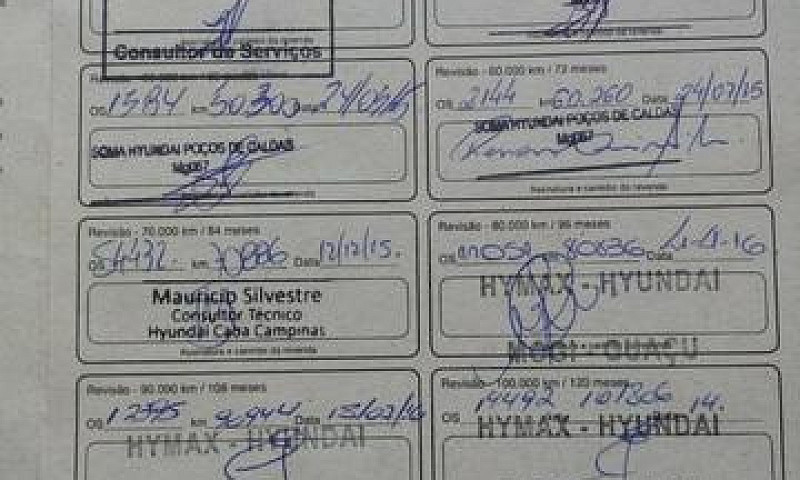 Consultor de Serviços
Revisão - 60.000 km / 72 meses
OS 1584 km 50.300 24/03/15
OS 2144 km 60.260 Data 24/07/15
SOMA HYUNDAI POÇOS DE CALDAS
SOMA HYUNDAI POÇOS DE CALDAS
Assinatura e carimbo da revenda
Revisão - 70.000 km / 84 meses
Revisão - 80.000 km / 96 meses
OS 54432 km 70886 Data 12/12/15.
OS 11051 80636 Data 4-4-16
Mauricio Silvestre
Consultor Técnico
Hyundai Caoa Campinas
HYMAX - HYUNDAI
MOGI - GUAÇU
Assinatura e carimbo da revenda
Revisão - 90.000 km / 108 meses
Revisão - 100.000 km / 120 meses
OS 12595 km Data 15/07/16
OS 14492 101306 14.
HYMAX - HYUNDAI
HYMAX - HYUNDAI